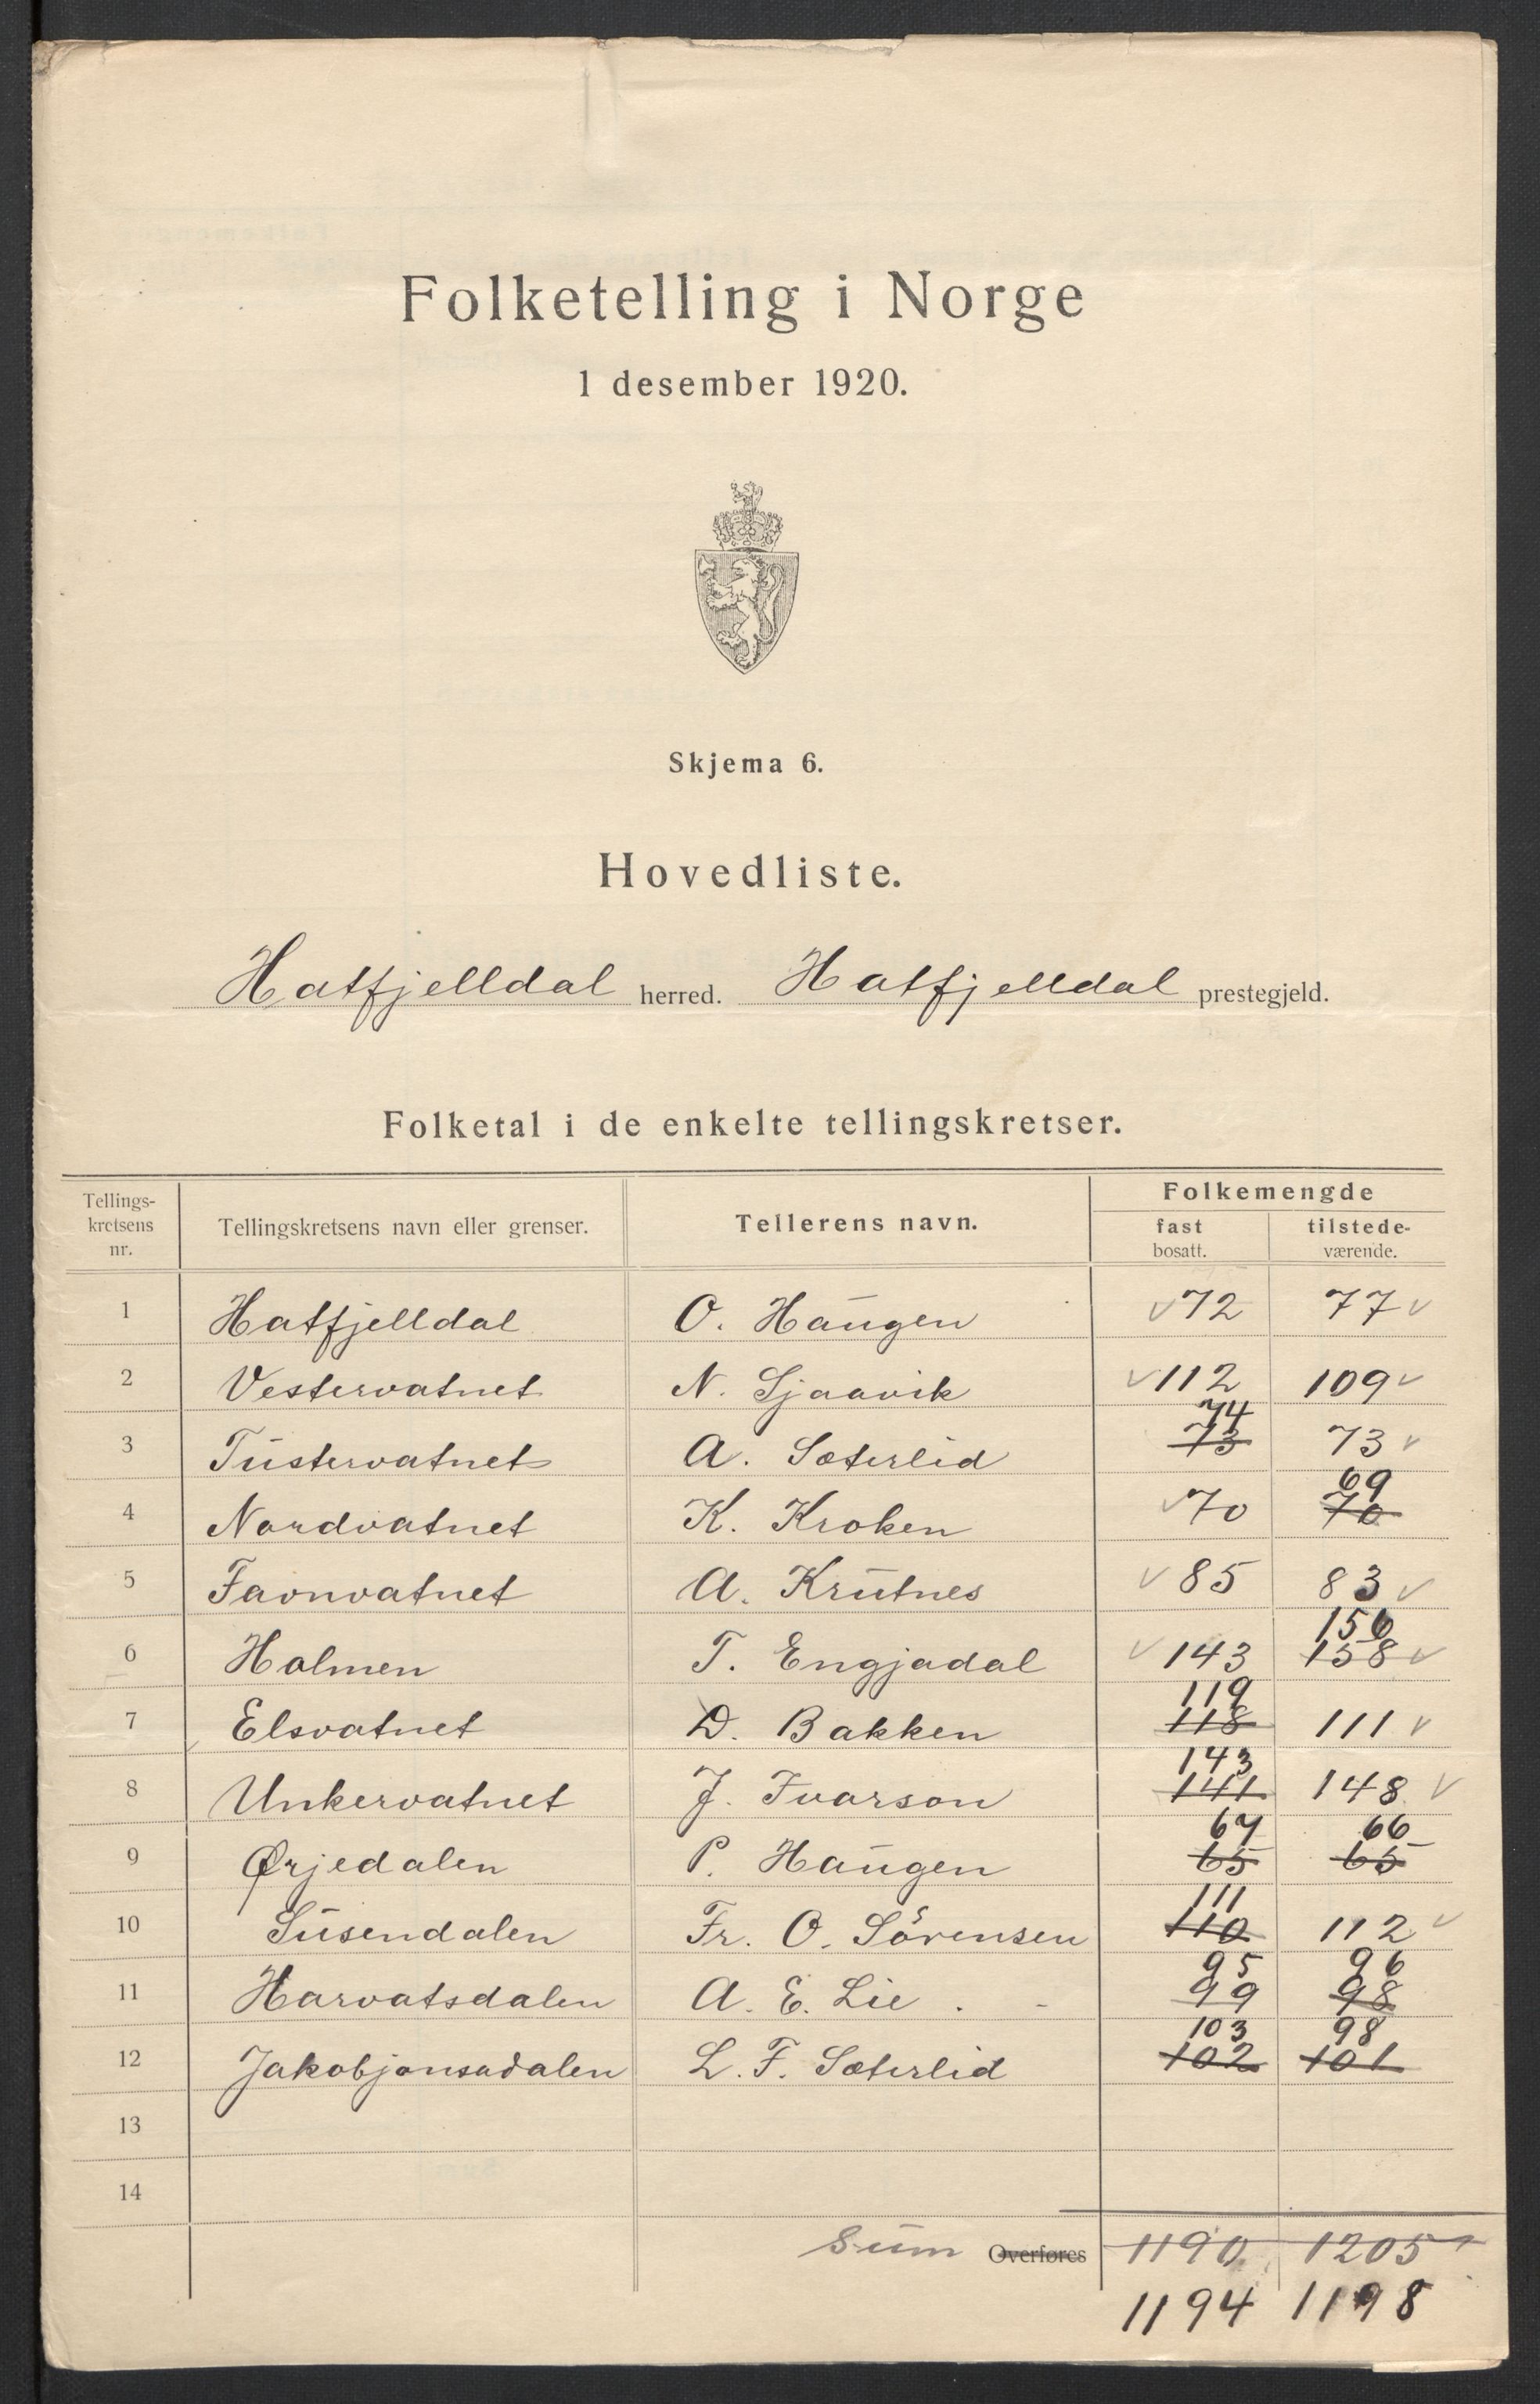 Folketelling i Norge
1 desember 1920.
Skjema 6.
Hovedliste.
Hatfjelldal herred. Hatfjelldal prestegjeld.
Folketal i de enkelte tellingskretser.
Tellings-
kretsens
nr.
Tellingskretsens navn eller grenser.
Tellerens navn.
Folkemengde
fast
bosatt.
tilstede-
værende.
1 Hatfjelldal O. Haugen ✓72 77✓
2 Vestervatnet N. Sjaavik ✓112 109✓
74
3 Tustervatnet A. Sæterlid 73 73✓
69
4 Nordvatnet K. Kroken ✓70 70
5 Favnvatnet A. Krutnes ✓85 83✓
156
6 Holmen T. Engjadal ✓143 158✓
119
7 Elsvatnet D. Bakken 118 111✓
143
8 Unkervatnet J. Ivarson 141 148✓
67 66
9 Ørjedalen P. Haugen 65 65
111
10 Susendalen Fr. O. Sörensen 110 112✓
95 96
11 Harvatsdalen A. E. Lie . - 99 98
103 98
12 Jakobjonsadalen L. F. Sæterlid 102 101
13
14
Sum Overføres 1190 1205
1194 1198